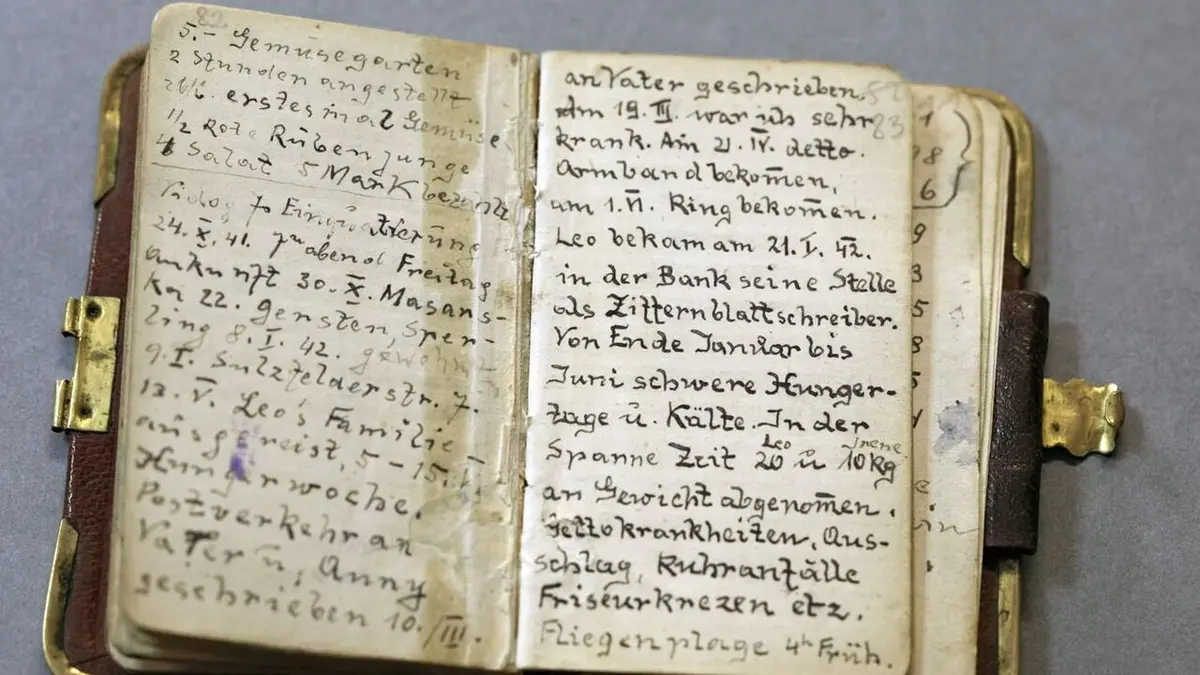 82
5.- Gemüsegarten
2 Stunden angestellt
erstesmal Gemüse
1/2 Rote Rüben junge
4 Salat 5 Mark bezahlt
Einquatierung
24. X. 41. abend Freitag
ankunft 30. X. Masans-
ka 22. Gersten, Sper-
ling 8. I. 42. gewohnt
9. I. Sulzfelderstr. 7.
13. V. Leo's Familie
ausgereist, 5-15. V.
Hungerwoche.
Postverkehr an
Vater u. Anny
geschrieben 10. III.
an Vater geschrieben.
Am 19. III. war ich sehr
83
krank. Am 21. IV. detto.
Armband bekom̄en,
am 1. VI. Ring bekom̄en.
Leo bekam am 21. I. 42.
in der Bank seine Stelle
als Zifternblattschreiber.
Von Ende Januar bis
Juni schwere Hunger-
tage u. Kälte. In der
Leo Irene
Spanne Zeit 20 u 10 kg
an Gewicht abgenom̄en.
Gettokrankheiten, Aus-
schlag, Ruhranfälle
Friseurkrezen etz.
Fliegenplage 4h Früh.
1
8
6
9
3
5
8
5
e
in